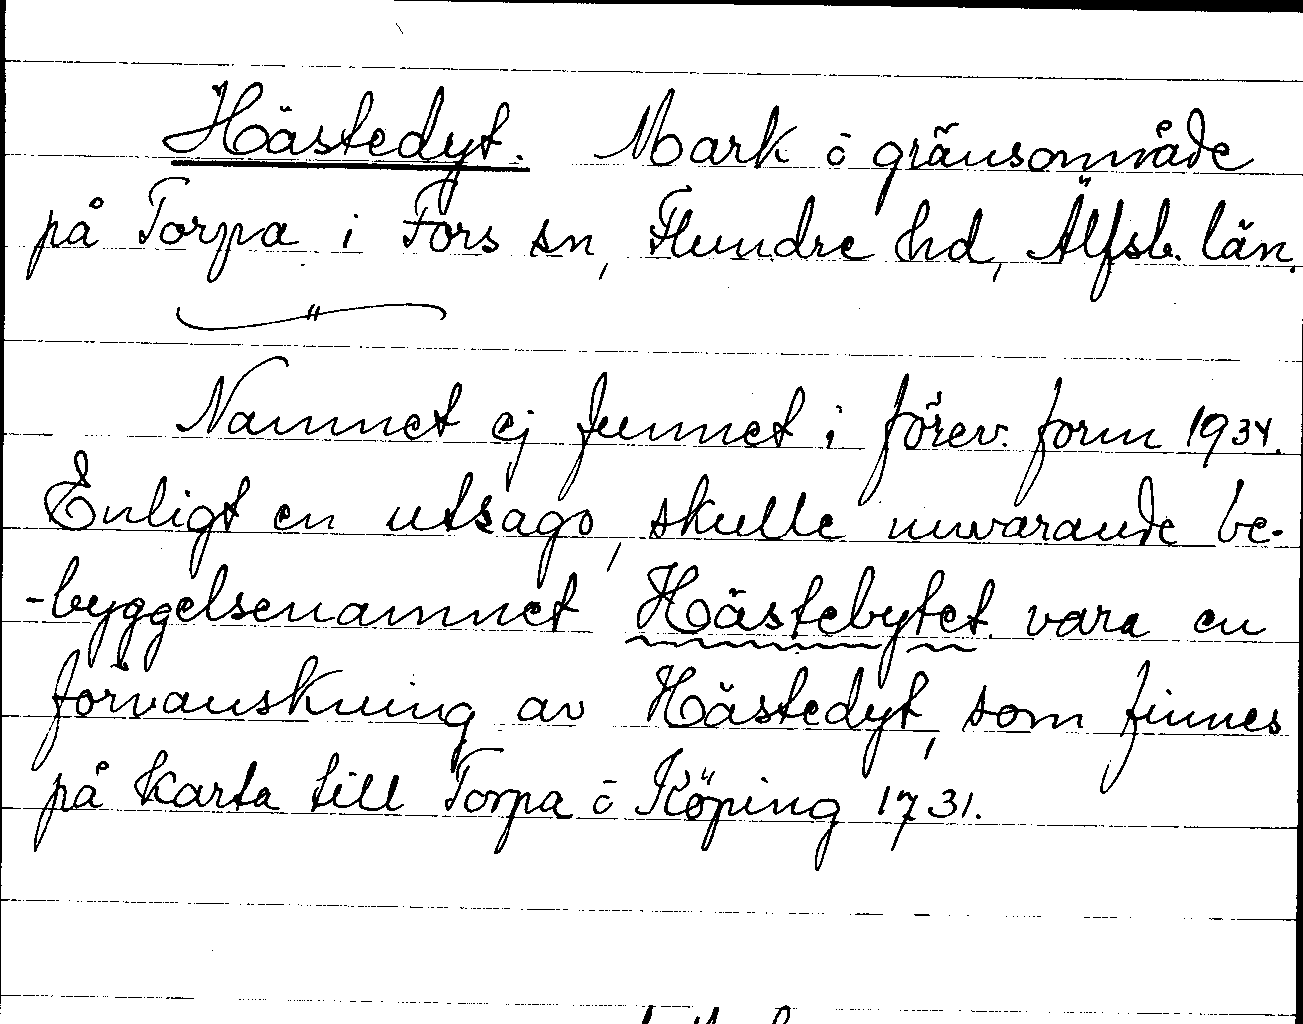 Hästedyt. Mark ö gränsområde
på Torpa i Fors sn, Flundre hd, Älfsb. län.
Namnet ej funnet i förev. form 1934.
Enligt en utsago, skulle nuvarande be-
-byggelsenamnet Hästebytet vara en
förvanskning av Hästedyt, som finnes
på karta till Torpa ö Köping 1731.